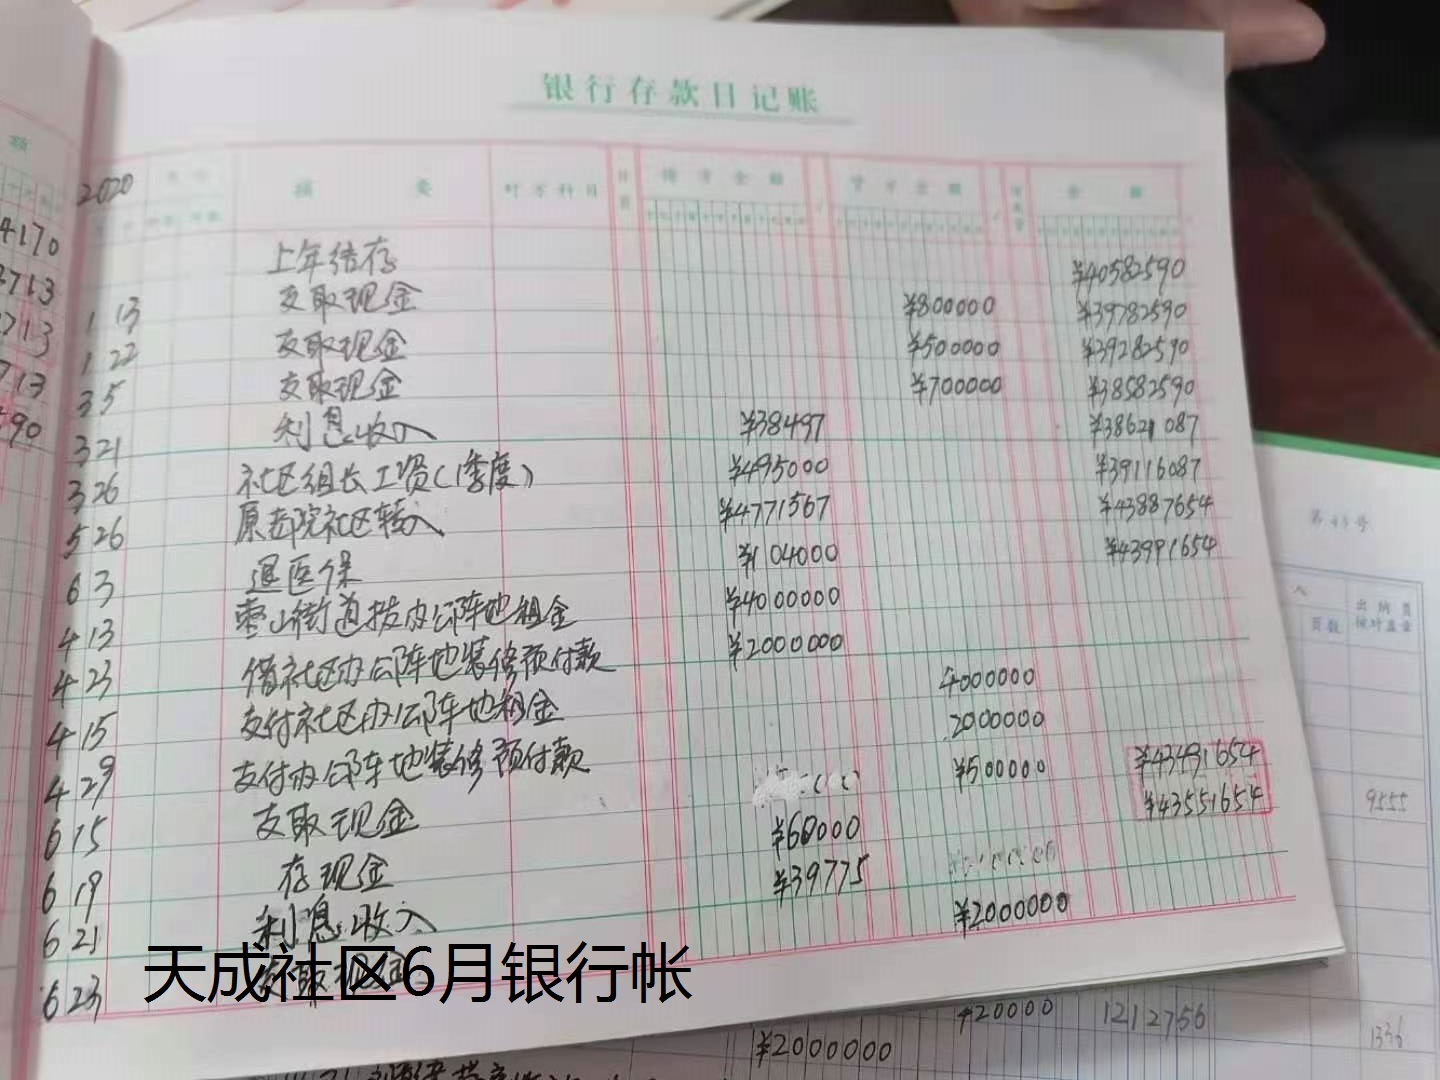 银行存款日记账
2020 摘要 对方科目 借方金额 贷方金额 余额
上年结存 ¥40582590
1 13 支取现金 ¥800000 ¥39782590
1 22 支取现金 ¥500000 ¥39282590
3 5 支取现金 ¥700000 ¥38582590
3 21 利息收入 ¥38497 ¥38621087
3 26 社区组长工资(1季度) ¥495000 ¥39116087
5 26 原 院社区转入 ¥4771567 ¥43887654
6 3 退医保 ¥104000 ¥43991654
4 13 枣山街道拨办公阵地租金 ¥4000000
4 23 借社区办公阵地装修预付款 ¥2000000
4 15 支付社区办公阵地租金 4000000
4 29 支付办公阵地装修预付款 2000000
6 15 支取现金 ¥500000 ¥43491654
6 19 存现金 ¥60000 ¥43551654
6 21 利息收入 ¥39775
6 23 支取现金 ¥2000000
天成社区6月银行帐
4170
3713
713
713
490
页数
出纳员
9555
420000 1212756
1336
¥2000000